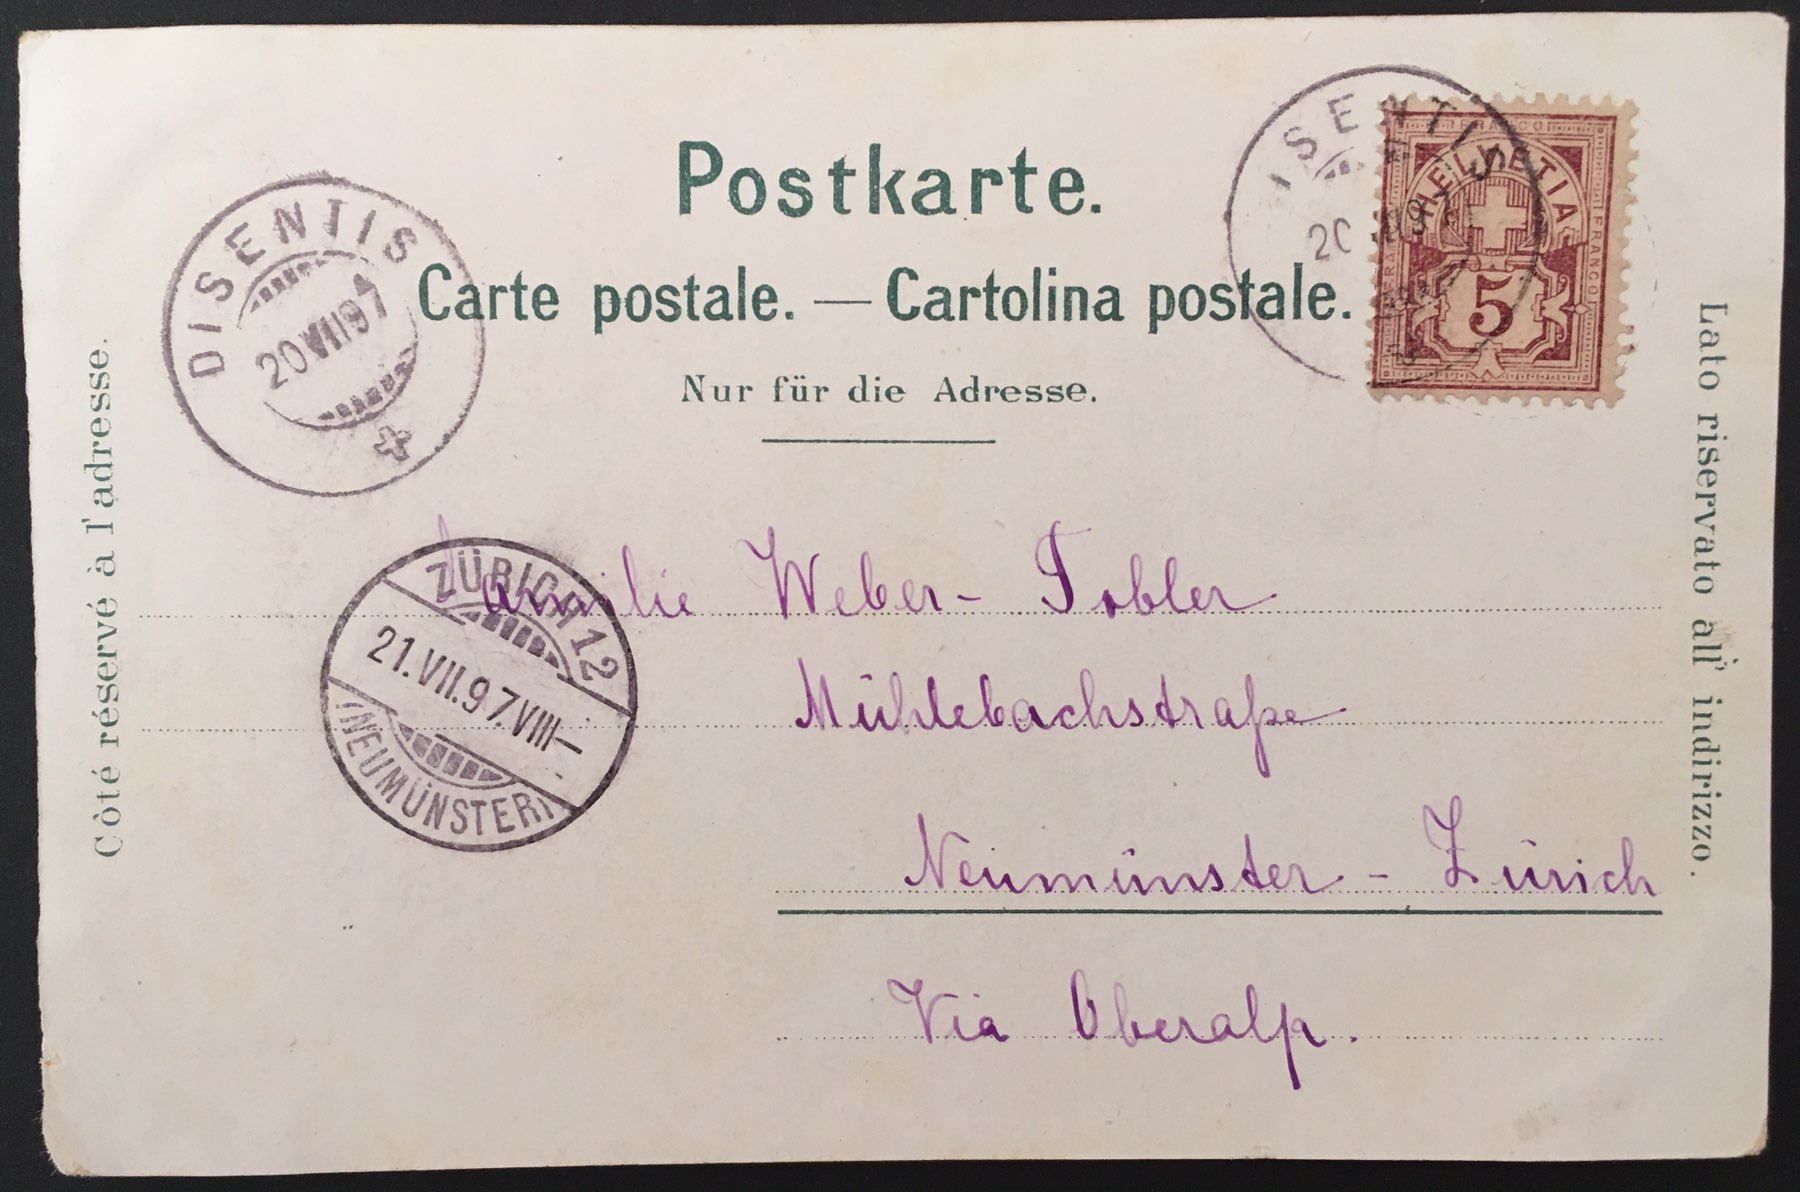 Postkarte.
Carte postale. — Cartolina postale.
Nur für die Adresse.
Côté réservé à l'adresse.
Lato riservato all' indirizzo.
DISENTIS
20 VII 97
ISENTIS
20
FRANCO
HELVETIA
FRANCO
5
ZÜRICH 12
21.VII.97.VIII—
(NEUMÜNSTER)
Familie Weber-Tobler
Mühlebachstraße
Neumünster - Zürich
Via Oberalp.